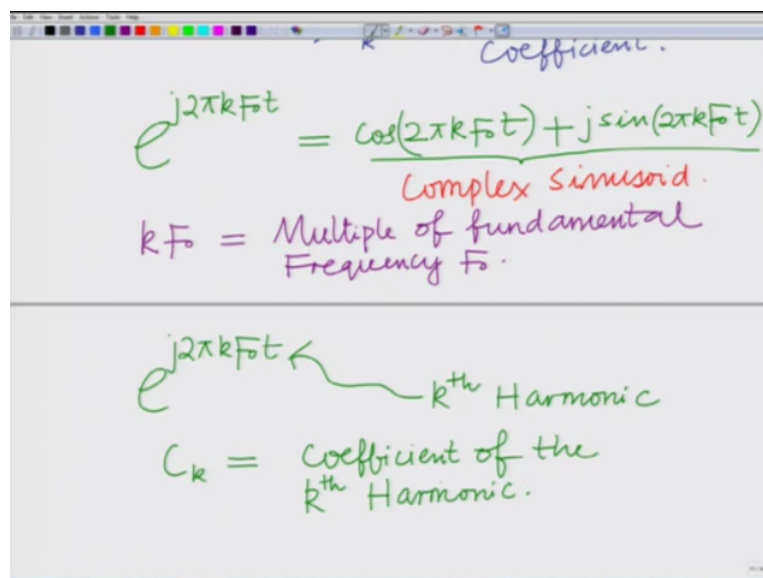 k Coefficient.
e^{j2πkF₀t} = cos(2πkF₀t) + j sin(2πkF₀t)
Complex Sinusoid.
kF₀ = Multiple of fundamental
Frequency F₀.
e^{j2πkF₀t}
kth Harmonic
C_k = Coefficient of the
kth Harmonic.